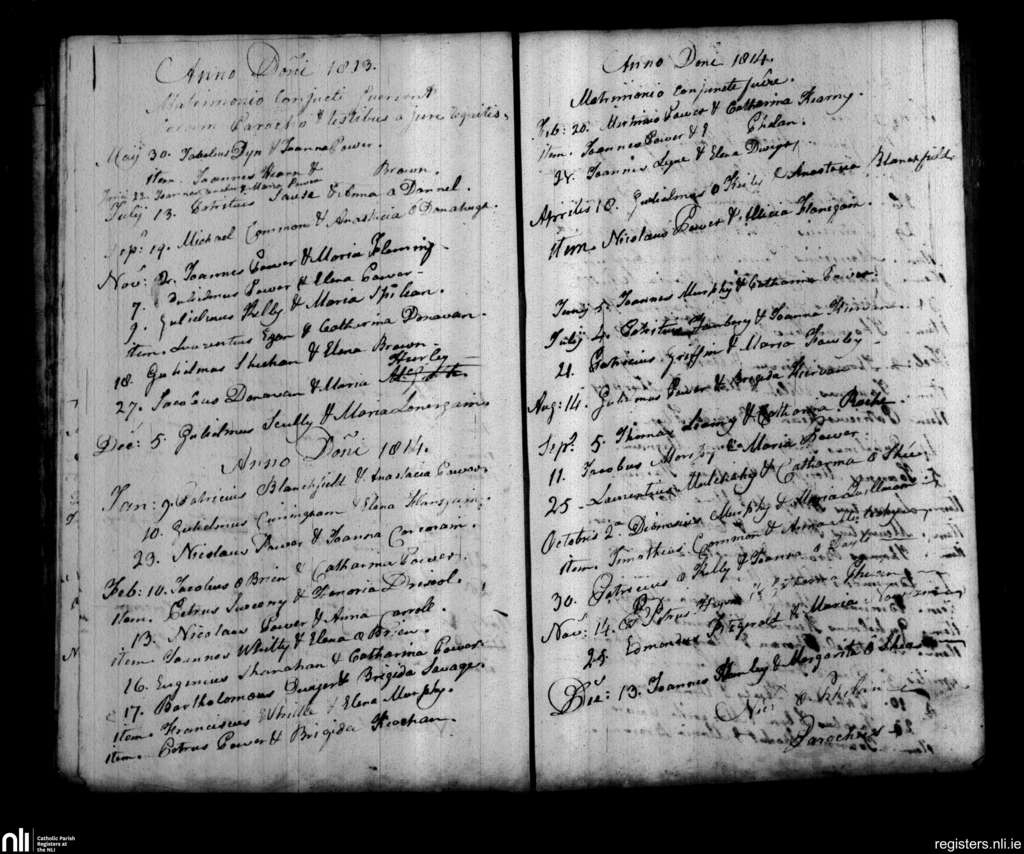 Anno Doñi 1813.
Matrimonio conjucti fuerunt
coram Parocho & testibus a jure requitis.
May 30. Jacobus Dyn & Joanna Power.
item. Joannes Hearn & Brown.
22. Joannes & Maria Power
July. 13. & Anna a Donnel.
Sepr. 19. Michael Common & Anastacia O Donahugh.
Nov: 2. Joannes Power & Maria Fleming
7. Gulielmus Power & Elena Power
9. Gulielmus Kelly & Maria
item. Laurentius Egan & Catharina Donavan.
18. Gulielmus Sheehan & Elena Brown.
27. Jacobus Donavan & Maria Hurley
Dec: 5. Gulielmus Scully & Maria Lonergan
Anno Doñi 1814.
Jan: 9. Patricius Blanchfield & Anastacia Power.
10. Gulielmus Cuningham & Elena
23. Nicolaus Power & Joanna Corcoram.
Feb: 10. Jacobus O Brien & Catharina Power.
item. Petrus & Honoria Driscol.
13. Nicolaus Power & Anna Carrole.
item. Joannes Whilly & Elena O Brien.
16. Eugenius Shanahan & Catharina Power
17. Bartholomous & Brigida Savage.
item. Franciscus Whille & Elena Murphy.
item. Petrus Power & Brigida Keochan.
Anno Doni 1814.
Matrimonio conjuncte fuêre.
Feb: 20. Power & Catharina Kearny.
item. Joannes Power & E Phelan.
24. Joannes & Elena
Aprilis 18. Gulielmus O Kielly & Anastasia Blanchfield
item. Nicolaus Power & Alicia Flanigan.
Juny 5. Joannes Murphy & Catharina Power.
July 4. & Joanna
21. Patricius Griffin & Maria
Aug: 14. Gulielmus Power & Brigida
Sepr. 5. Thomas & Catharina Roche.
11. Jacobus Morphy & Maria Power
25. Laurentius Mulcahy & Catharina O Shee
Octobris 2a Dionasius Murphy & Maria
item. Timotheus Common & Anna
30. Patricius O Kelly & Joanna
Nov: 14. Petrus
25 Edmondus & Maria
Dec: 13. Joannes Hurley & Margarita O Shea
Nics O Phelan
Parochus
nli
Catholic Parish
Registers at
the NLI
registers.nli.ie